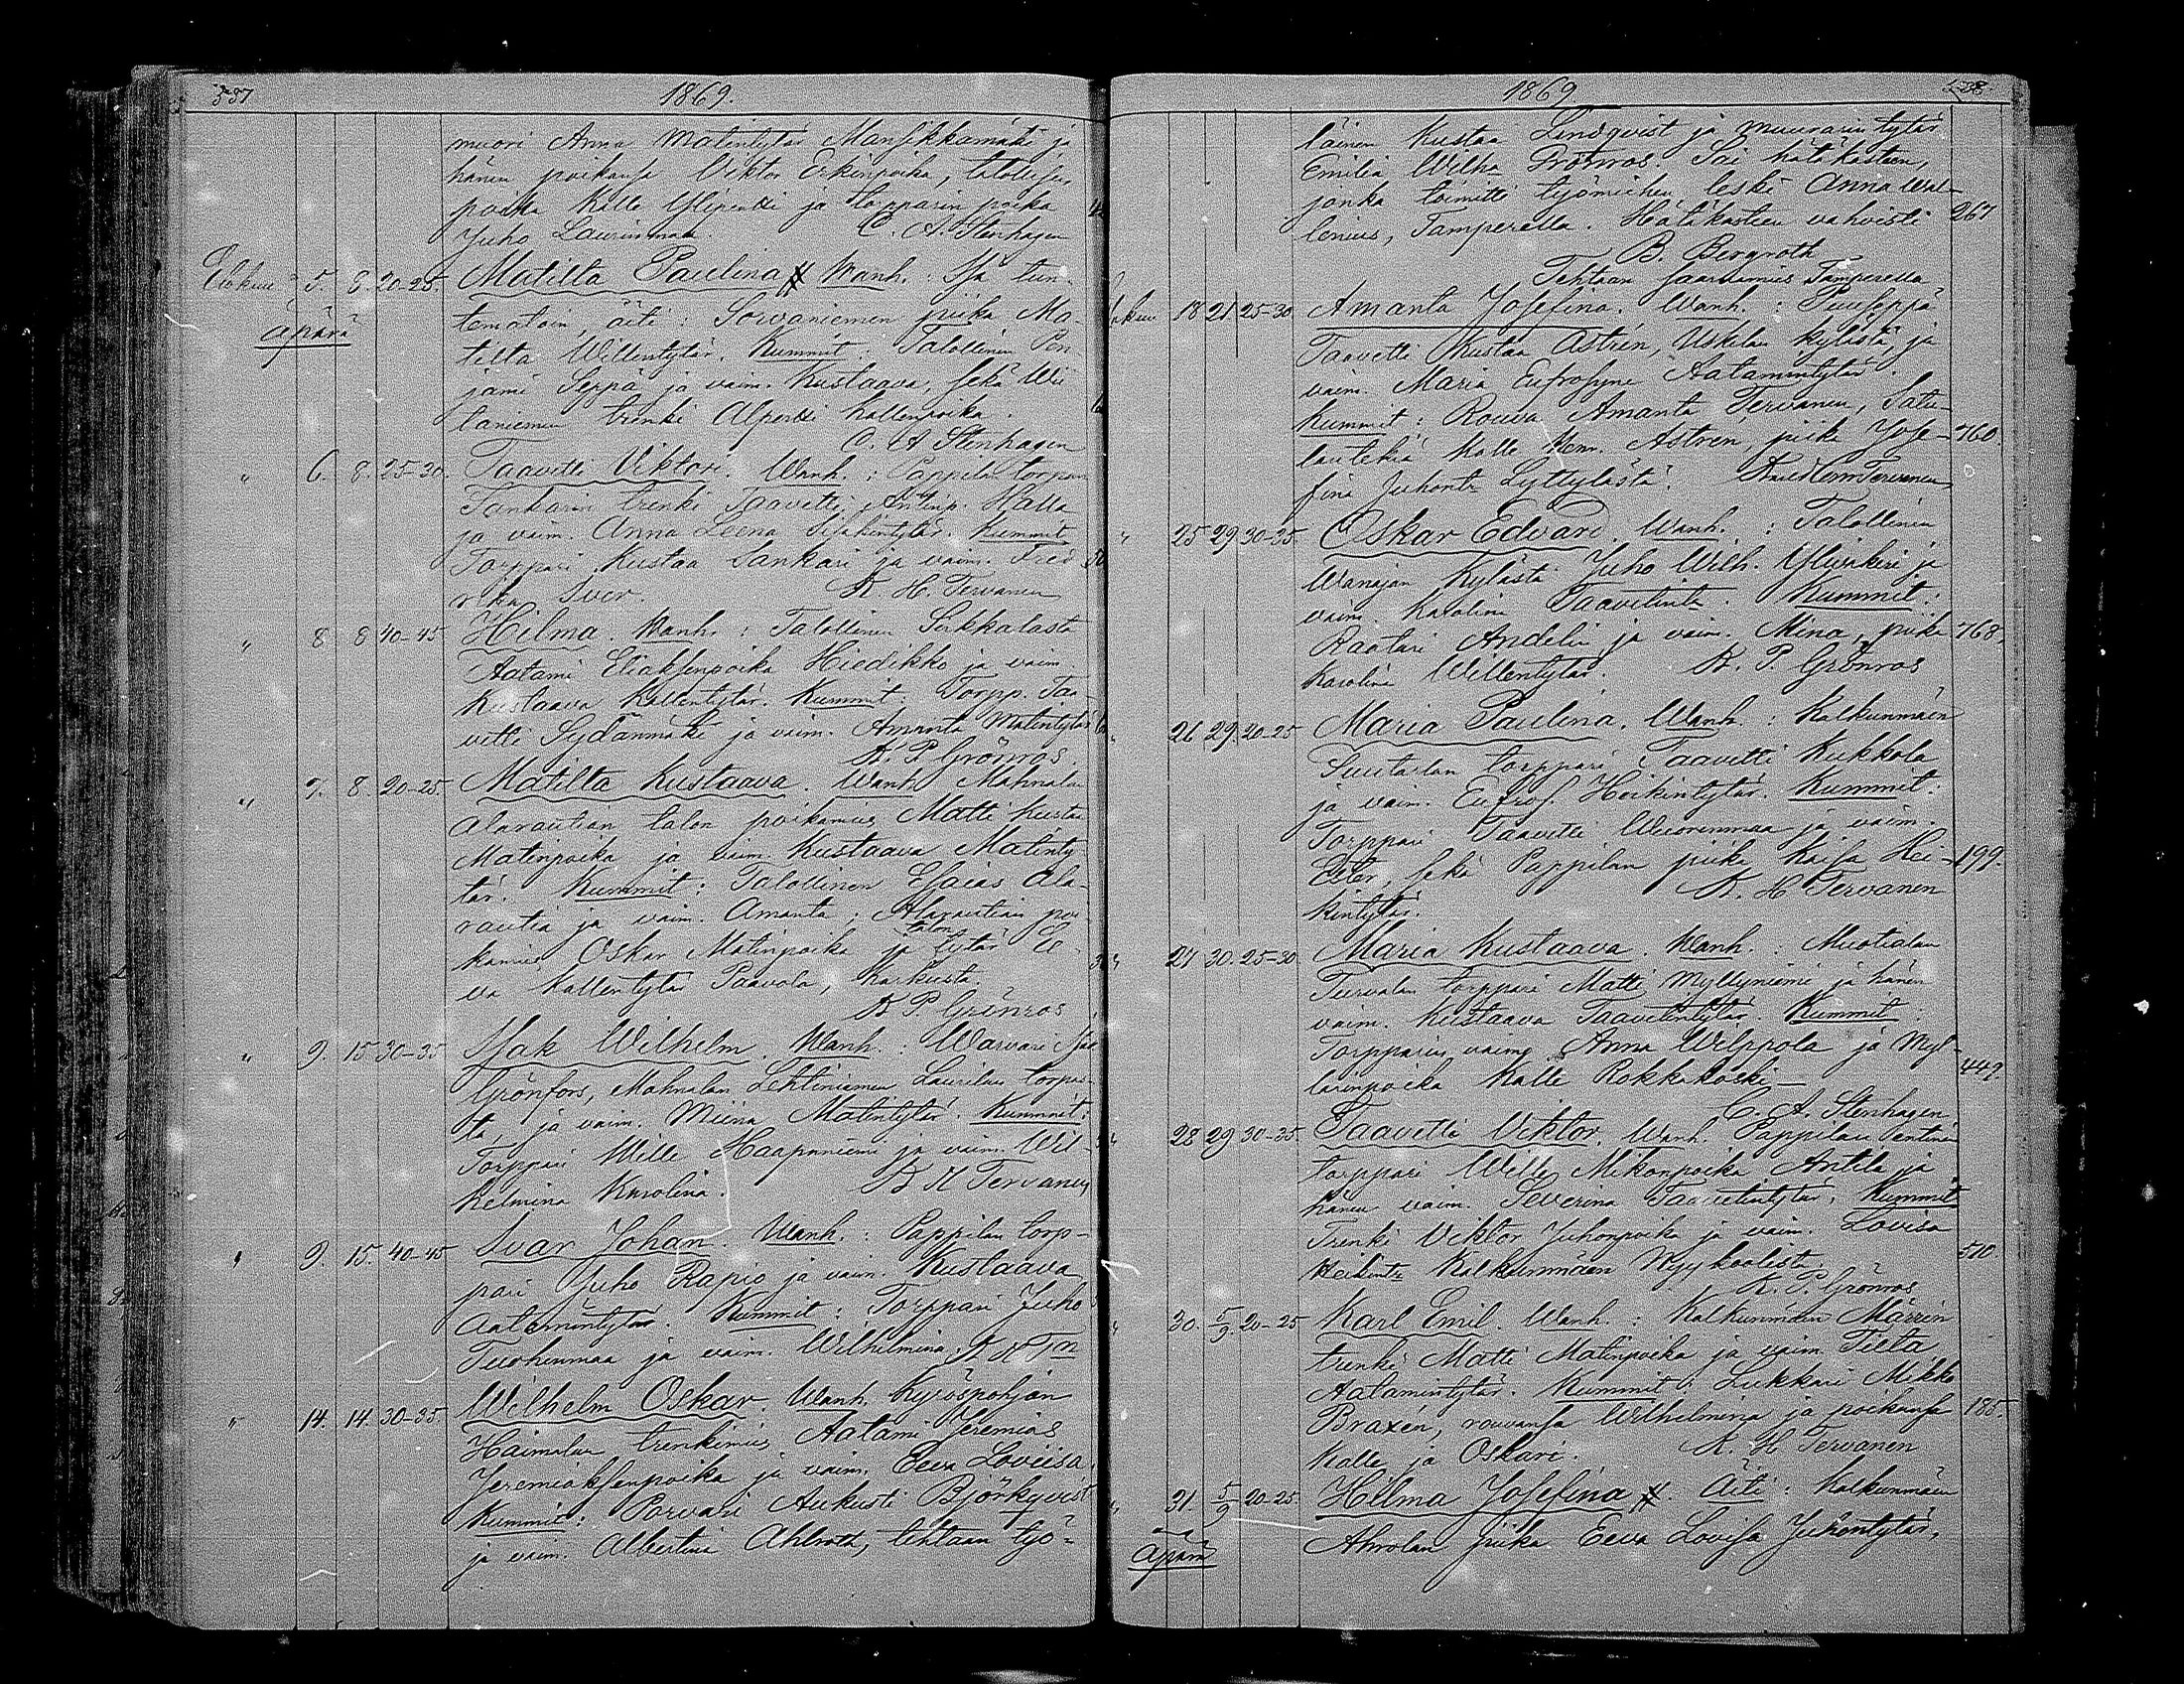 537
1869.
muori Anna Matintytär Mansikkamäki ja
hänen poikansa Viktor Erkinpoika, talollisen
poika Kalle Ylipentti ja torpparin poika
Juho Laurinmaa. C. A. Stenhagen
Elokuu 5. 8. 20-25. Matilta Paulina # Wanh.: Isä tun-
tematoin, äiti: Sorvaniemen piika Ma-
äpärä
tilta Willentytär. Kummit: Talollinen Pen
jami Seppä ja vaim. Kustaava, sekä Wii
taniemen trenki Alpertti Kallenpoika.
C. A Stenhagen
" 6. 8. 25-30. Taavetti Viktori. Wanh.: Pappilan torpan
Sankarin trenki Taavetti Antinp. Halla
ja vaim. Anna Leena Isakintytär. Kummit
Torppari Kustaa Sankari ja vaim. Fred
rika Iver. K. H. Tervanen
" 8 8 40-45 Hilma. Wanh.: Talollinen Sirkkalasta
Aatami Eliaksenpoika Hiedikko ja vaim.
Kustaava Kallentytär. Kummit: Torpp. Taa-
vetti Sydänmäki ja vaim. Amanta Matintytär
K. P. Grönros.
" 7. 8. 20-25. Matilta Kustaava. Wanh. Mahnalan
Alarautian talon poikamies Matti Kustaa
Matinpoika ja vaim. Kustaava Matinty
tär. Kummit: Talollinen Esaias Ala-
rautia ja vaim. Amanta; Alarautian poi
kamies Oskar Matinpoika ja talon tytär Ee-
va Kallentytär Paavola, Karkusta.
K P. Grönros
" 9. 15 30-35 Isak Wilhelm. Wanh.: Warvari Isak
Grönfors, Mahnalan Lehtiniemen Laurilan torpas-
ta, ja vaim. Miina Matintytär. Kummit:
Torppari Wille Haapaniemi ja vaim. Wil-
helmina Karolina. K H Tervanen
" 9. 15. 40-45 Ivar Johan. Wanh.: Pappilan torp-
pari Juho Rapio ja vaim. Kustaava
Aatamintytär. Kummit: Torppari Juho
Tuohenmaa ja vaim. Wilhelmina. K H Tn
" 14. 14. 30-35. Wilhelm Oskar. Wanh. Kyröspohjan
Haimalan trenkimies Aatami Jeremias
Jeremiaksenpoika ja vaim. Eeva Loviisa.
Kummit: Porvari Aukusti Björkqvist
ja vaim. Albertina Ahlroth, tehtaan työ-
1869
538.
läinen Kustaa Lindqvist ja muurarin tytär
Emilia Wilha Grönros. Sai hätäkasteen,
jonka toimitti työmiehen leski Anna Wal-
lenius, Tamperella. Hätäkasteen vahvisti 267
B. Bergroth
Tehtaan saarnamies Tamperella
18 21 25-30 Amanta Josefina. Wanh.: Puuseppä
Taavetti Kustaa Astrén, Usklan kylästä, ja
vaim. Maria Eufrosyne Aatamintytär.
Kummit: Rouva Amanta Tervanen, Satu-
lantekiä Kalle Herm. Astren, piika Jose- 760
fina Juhontr Lyttylästä.
" 25 29 30-35 Oskar Edvard. Wanh.: Talollinen
Wanajan kylästä Juho Wilh. Ylivakeri ja
vaim. Karolina Taavetintr. Kummit:
Raatari Andelin ja vaim. Mina, piika 768.
Karolina Willentytär. K. P. Grönros
" 26 29. 20-25 Maria Paulina. Wanh.: Kalkunmäen
Suutarlan torppari Taavetti Kukkola
ja vaim. Eufros. Heikintytär. Kummit:
Torppari Taavetti Wuorenmaa ja vaim.
Ester, sekä Pappilan piika Kaisa Hei- 199.
kintytär. K. H Tervanen
" 27 30. 25-30 Maria Kustaava. Wanh.: Muotialan
Turvalan torppari Matti Myllyniemi ja hänen
vaim. Kustaava Taavetintytär. Kummit:
Torpparin vaimo Anna Wilppola ja Myl-
lärinpoika Kalle Rokkakoski— 449.
C. A. Stenhagen
" 28 29 30-35. Taavetti Viktor. Wanh. Pappilan Pentin
torppari Wille Mikonpoika Antila ja
hänen vaim. Severina Taavetintytär. Kummit
Trenki Viktor Juhonpoika ja vaim. Lovisa
Heikintr Kalkunmäen Myykoolista. 510.
K. P. Grönros
" 30. 5/9. 20-25 Karl Emil. Wanh.: Kalkunmäen Märrin
trenki Matti Matinpoika ja vaim Tilta
Aatamintytär. Kummit: Lukkari Mikko
Braxén, rouvansa Wilhelmina ja poikansa 185.
Kalle ja Oskari. K. H Tervanen
" 31. 5/9 20-25. Hilma Josefina #. Äiti: Kalkunmäen
äpärä
Ahrolan piika Eeva Lovisa Juhontytär,